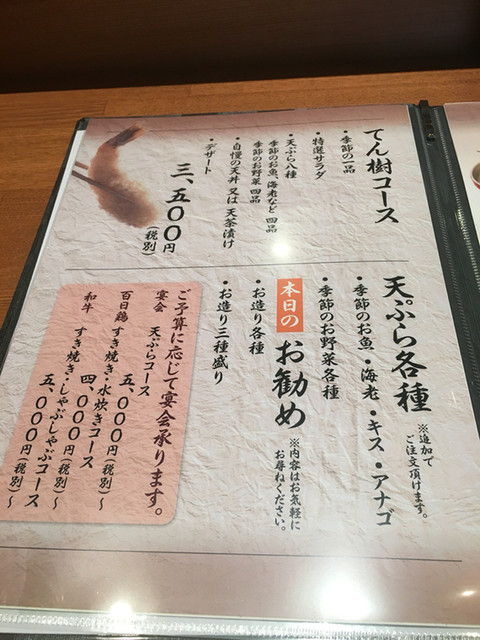 てん樹コース
・季節の一品
・特選サラダ
・天ぷら八種
季節のお魚、海老など 四品
季節のお野菜 四品
・自慢の天丼 又は 天茶漬け
・デザート
三、五〇〇円
(税別)
天ぷら各種
※追加で
ご注文頂けます。
・季節のお魚・海老・キス・アナゴ
・季節のお野菜各種
本日の お勧め
※内容はお気軽に
お尋ねください。
・お造り各種
・お造り三種盛り
ご予算に応じて宴会承ります。
宴会 天ぷらコース
五、〇〇〇円(税別)〜
百日鶏 すき焼き・水炊きコース
四、〇〇〇円(税別)〜
和牛 すき焼き・しゃぶしゃぶコース
五、〇〇〇円(税別)〜